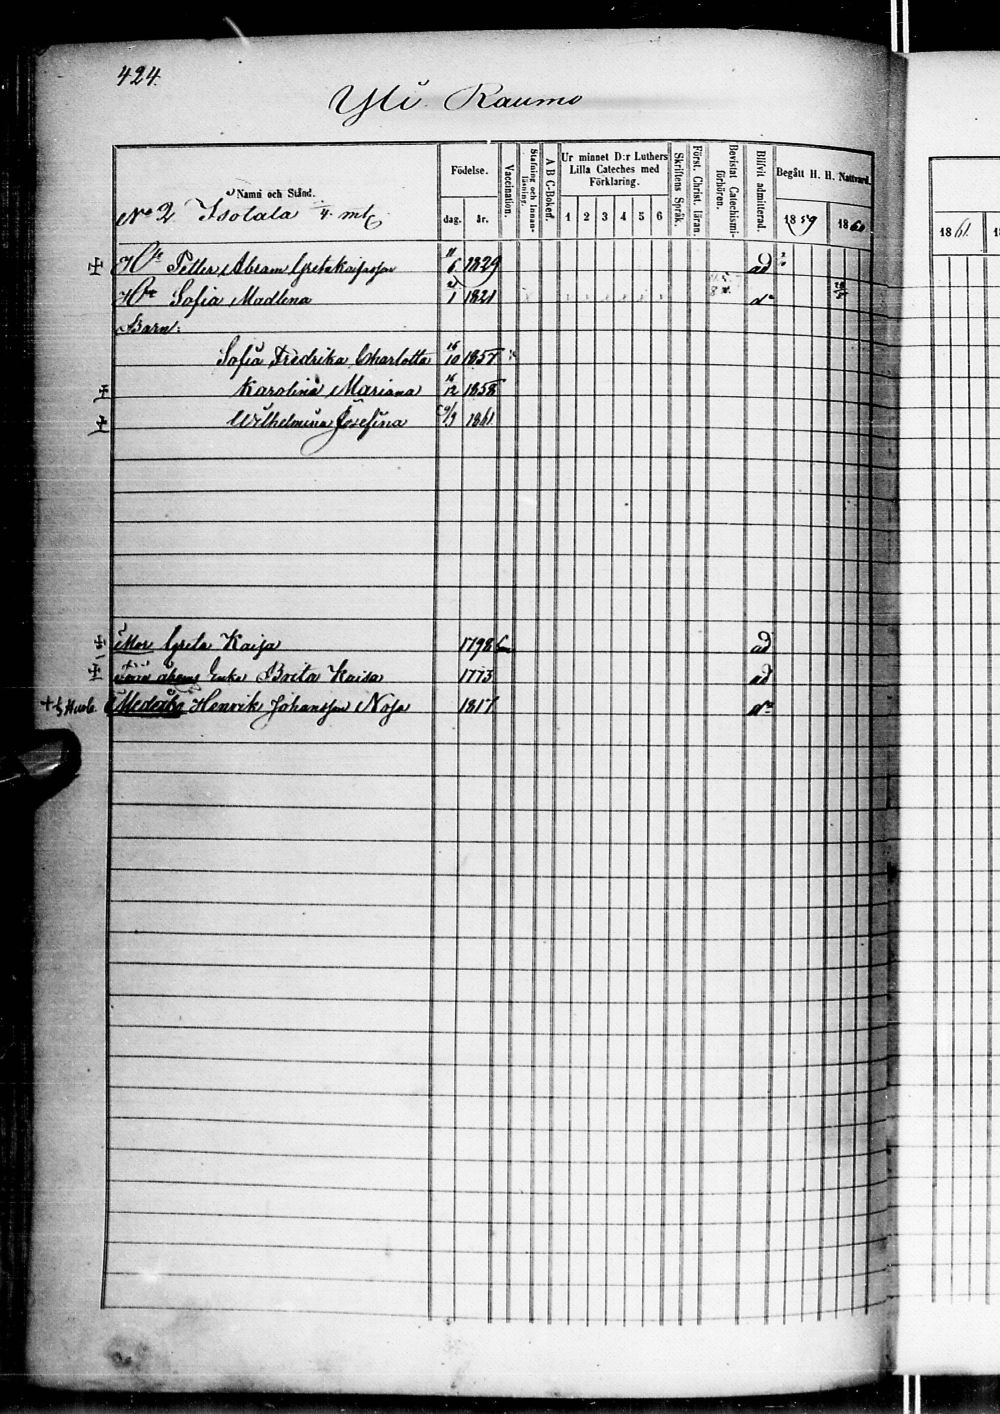 424.
Yli Raumo
Namn och Stånd.
Födelse.
dag.
år.
Vaccination.
Stafning och Innanläsning.
A B C-Boken.
Ur minnet D:r Luthers
Lilla Cateches med
Förklaring.
1 2 3 4 5 6
Skriftens Språk.
Först. Christ. läran.
Bevistat Catechismiförhören.
Blifvit admitterad.
Begått H. H. Nattvard.
1859
1860
1861
No 2 Isotala
Petter Abram 1829 ad
Sofia Madlena 1 1821
Barn:
Sofia Fredrika Charlotta 16 10 1857
Karolina Mariana 16 12 1858
Wilhelmina Josefina 1861
Mor Greta Kaija 1798 ad
Enka Brita Kaisa 1773 ad
Henrik Johansson 1817